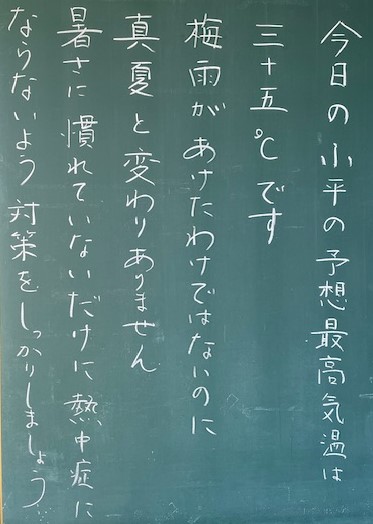 今日の小平の予想最高気温は
三十五℃です
梅雨があけたわけではないのに
真夏と変わりありません
暑さに慣れていないだけに熱中症に
ならないよう対策をしっかりしましょう